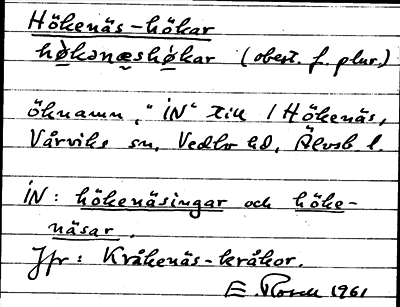 Hökenäs-hökar
hø̀kənæshø̀kar (obest. f. plur.)
öknamn, "IN" till 1 Hökenäs,
Vårviks sn, Vedbo hd, Älvsb l.
IN: hökenäsingar och höke-
näsar.
Jfr: Kråkenäs-kråkor.
E. Rosell 1961